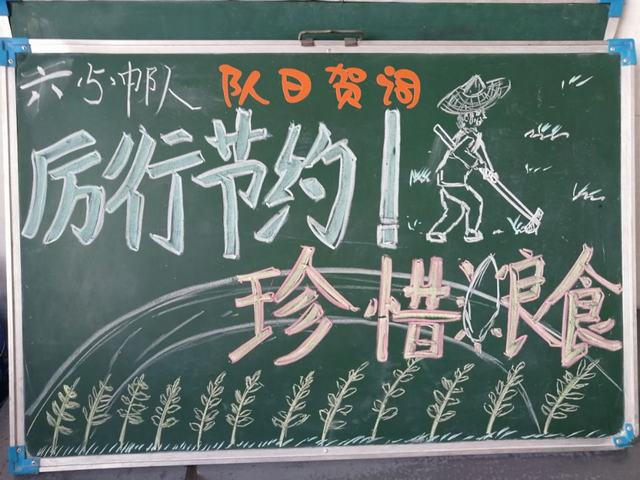 六(5)中队
队日贺词
厉行节约!
珍惜粮食